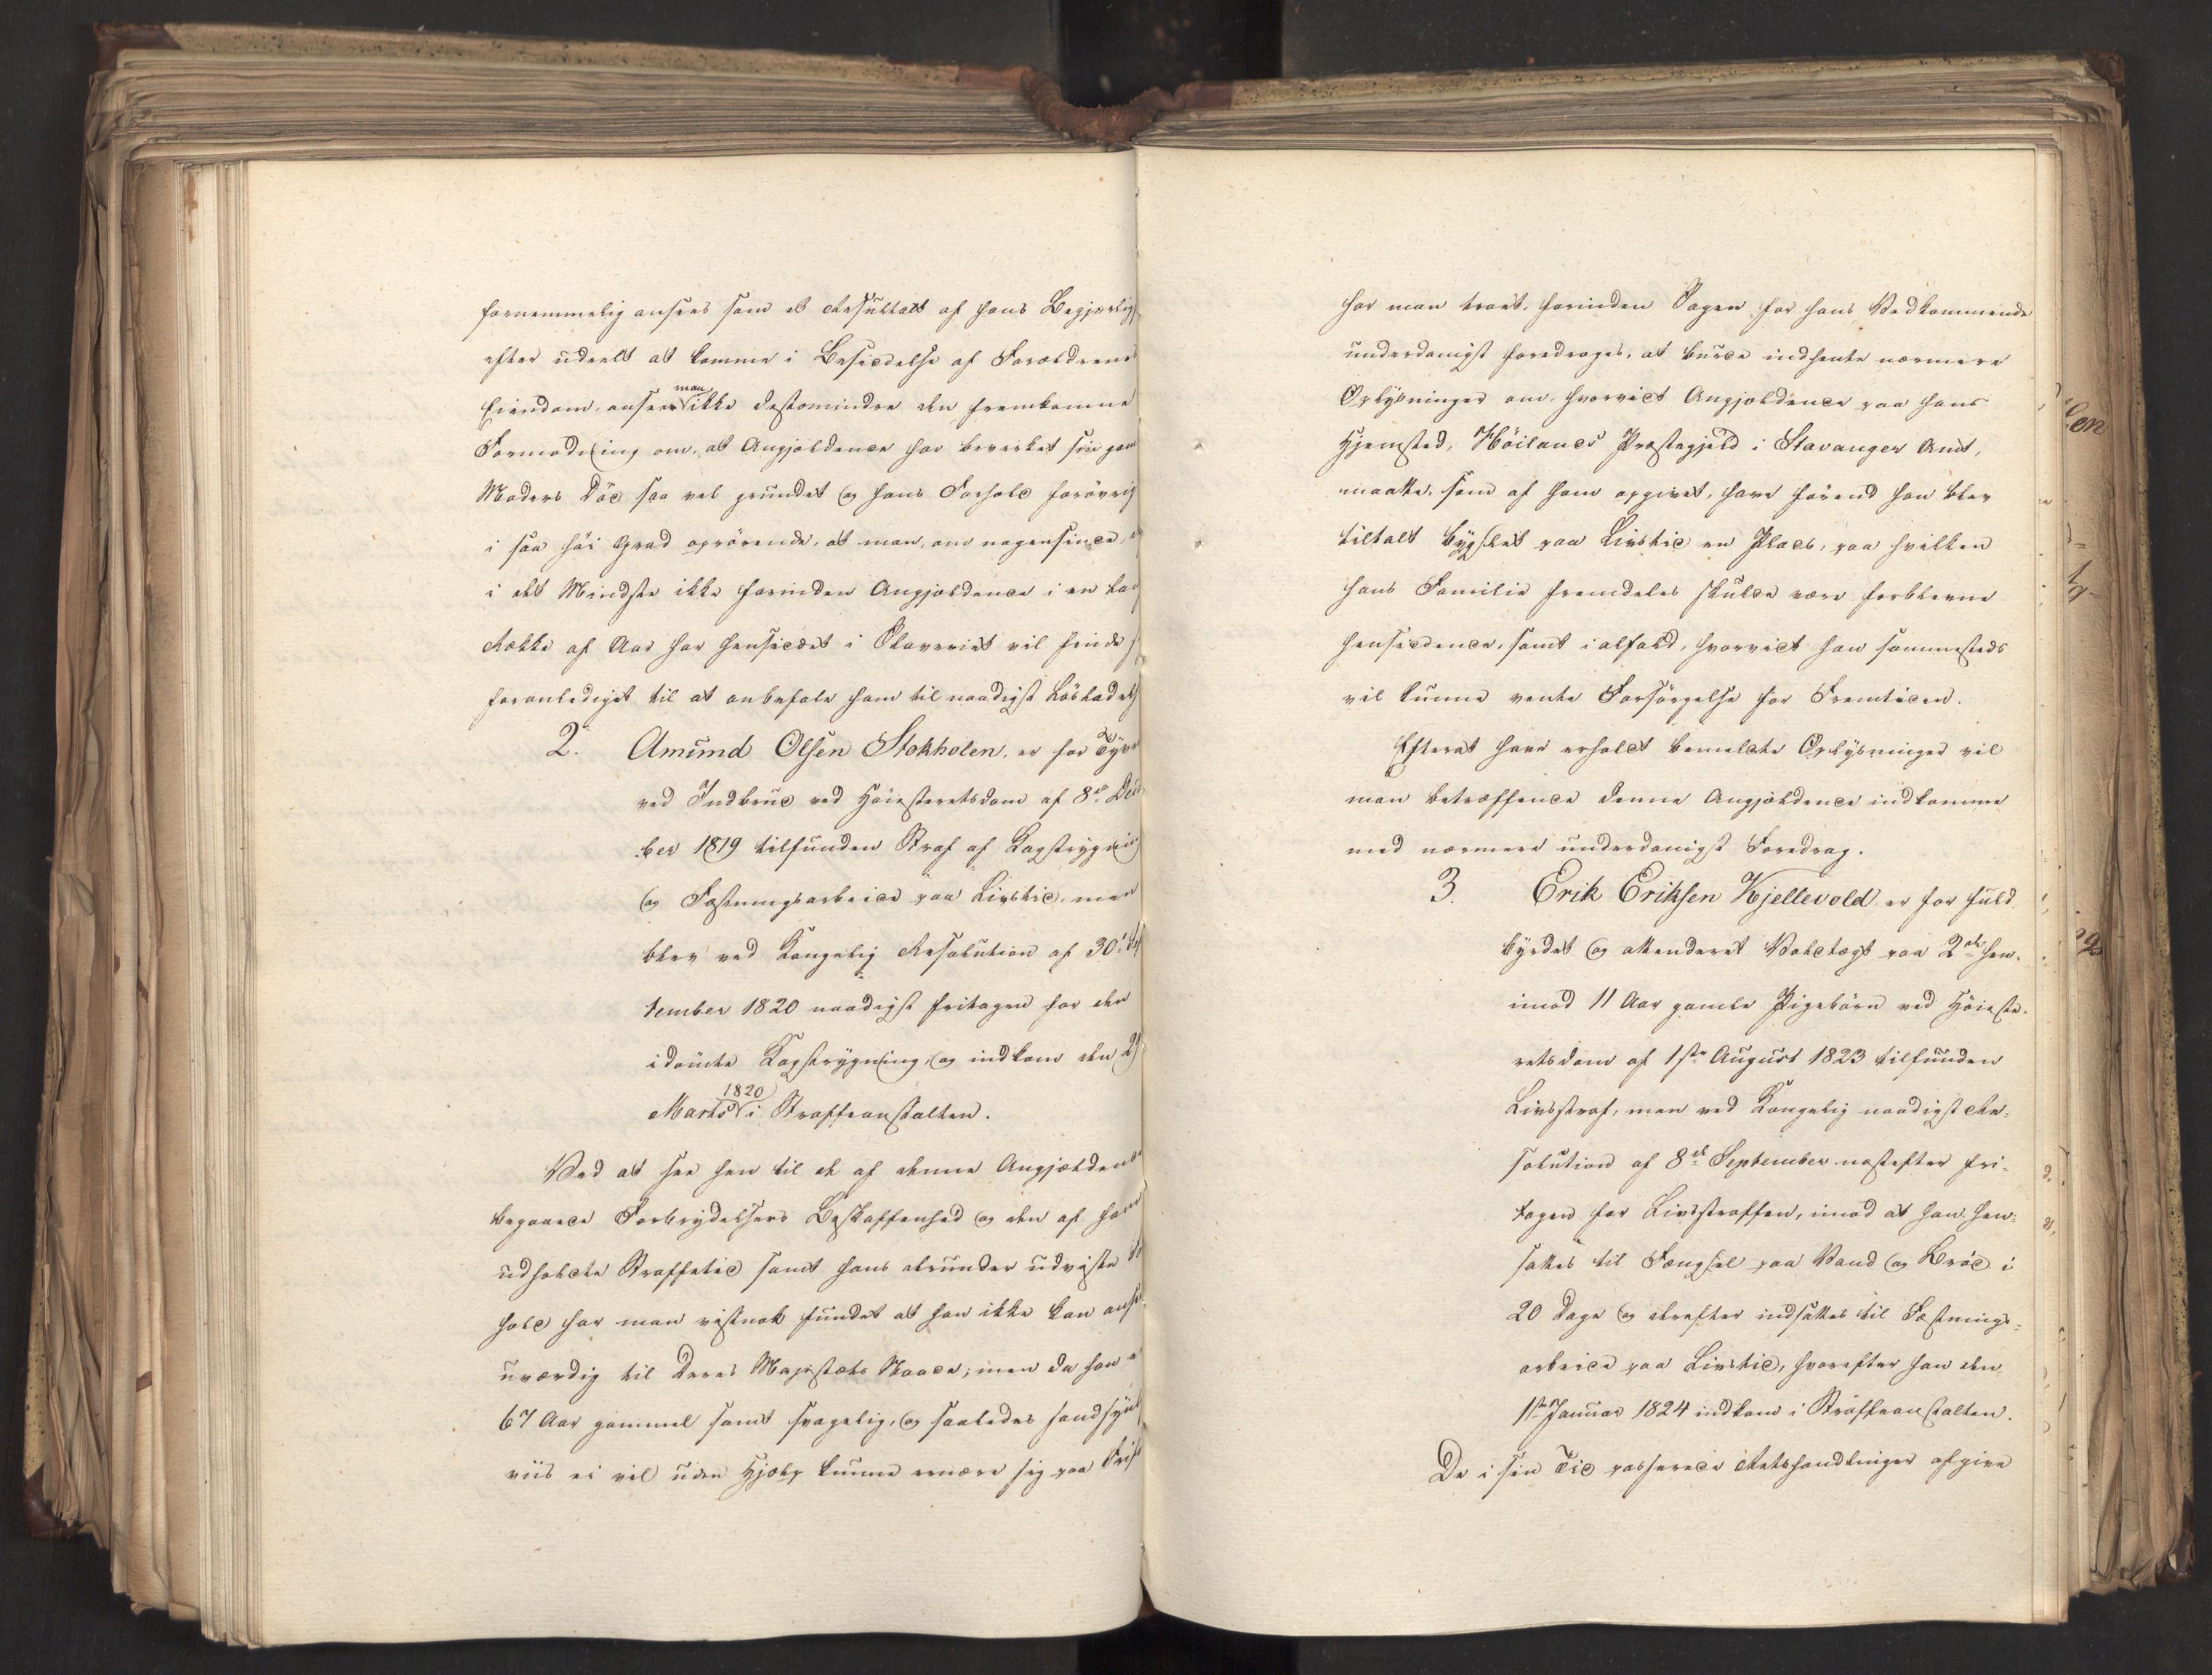 fornemmelig ansees som et Resultatt af hans Begjærlig
efter udeelt at komme i Besiddelse af Forældrenes
Eiendom, anseer man ikke destomindre den fremkomne
Formodning om, at Angjældende har bevirket sin gam
Moders Død saa vel grundet og hans Forhold forøvrig
i saa høi Grad oprørende, at man, om nogensinde,
i det Mindste ikke forinden Angjældende i en lan
Række af Aar har hensiddet i Slaveriet vil finde
foranlediget til at anbefale ham til naadigst Løsladels
2. Amund Olsen Stokholen, er for Tyve
ved Indbrud ved Høiesteretsdom af 8de Dec
ber 1819 tilfunden Straf af Kagstrygni
og Fæstningsarbeide paa Livstid, men
blev ved Kongelig Resolution af 30te
tember 1820 naadigst fritagen for den
idømte Kagstrygning, og indkom den 2
Marts 1820 i Straffeanstalten.
Ved at see hen til de af denne Angjældende
begaaede Forbrydelsers Beskaffenhed og den af ham
udholdte Straffetid samt hans derunder udviste
hold har man vistnok fundet at han ikke kan anse
uværdig til Deres Majestæts Naade; men da han e
67 Aar gammel samt svagelig, og saaledes sandsynl
viis ei vil uden Hjælp kunne ernære sig paa Fri
har man troet, forinden Sagen for hans Vedkommende
underdanigst foredrages, at burde indhente nærmere
Oplysninger om, hvorvidt Angjældende paa hans
Hjemsted, Höilands Præstegjeld i Stavanger Amt,
maatte, som af ham opgivet, have förend han blev
tiltalt bygslet paa Livstid en Plads, paa hvilken
hans Familie fremdeles skulde være forblevne
hensiddende, samt i alfald, hvorvidt han sammesteds
vil kunne vente Forsörgelse for Fremtiden.
Efterat have erholdt bemeldte Oplysninger vil
man betræffende denne Angjældende indkomme
med nærmere underdanigst Foredrag.
3. Erik Eriksen Kjellevold er for fuld
byrdet og attenderet Voldtægt paa 2de hen-
imod 11 Aar gamle Pigebörn ved Høieste-
retsdom af 1ste August 1823 tilfunden
Livsstraf, men ved Kongelig naadigst Re-
solution af 8de September næstefter fri-
tagen for Livsstraffen, imod at han hen-
sattes til Fængsel paa Vand og Bröd i
20 Dage og derefter indsattes til Fæstnings-
arbeide paa Livstid, hvorefter han den
1ste Januar 1824 indkom i Straffeanstalten.
De i sin Tid passerede Retshandlinger afgive